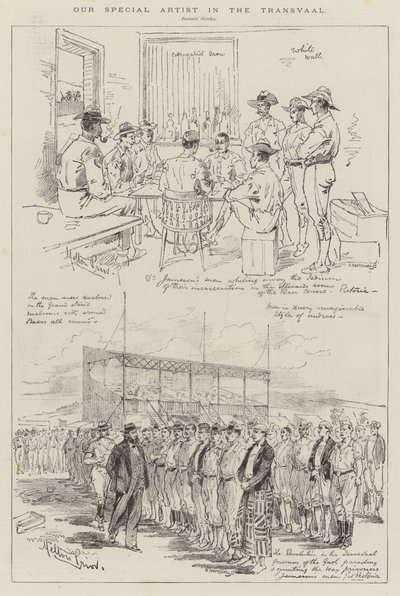 OUR SPECIAL ARTIST IN THE TRANSVAAL.
Facsimile Sketches.
Corrugated Iron
White
Walls
Melton Prior.
Dr Jameson's men whiling away the tedium
of their incarceration in the Stewards room
of the Race Course - Pretoria -
The men were enclosed
in the Grand Stand
enclosure with armed
Boers all round -
Men in every imaginable
style of undress -
Melton Prior.
The Revolution in the Transvaal
Governor of the Gaol parading
& counting the War prisoners
Jameson's men at Pretoria